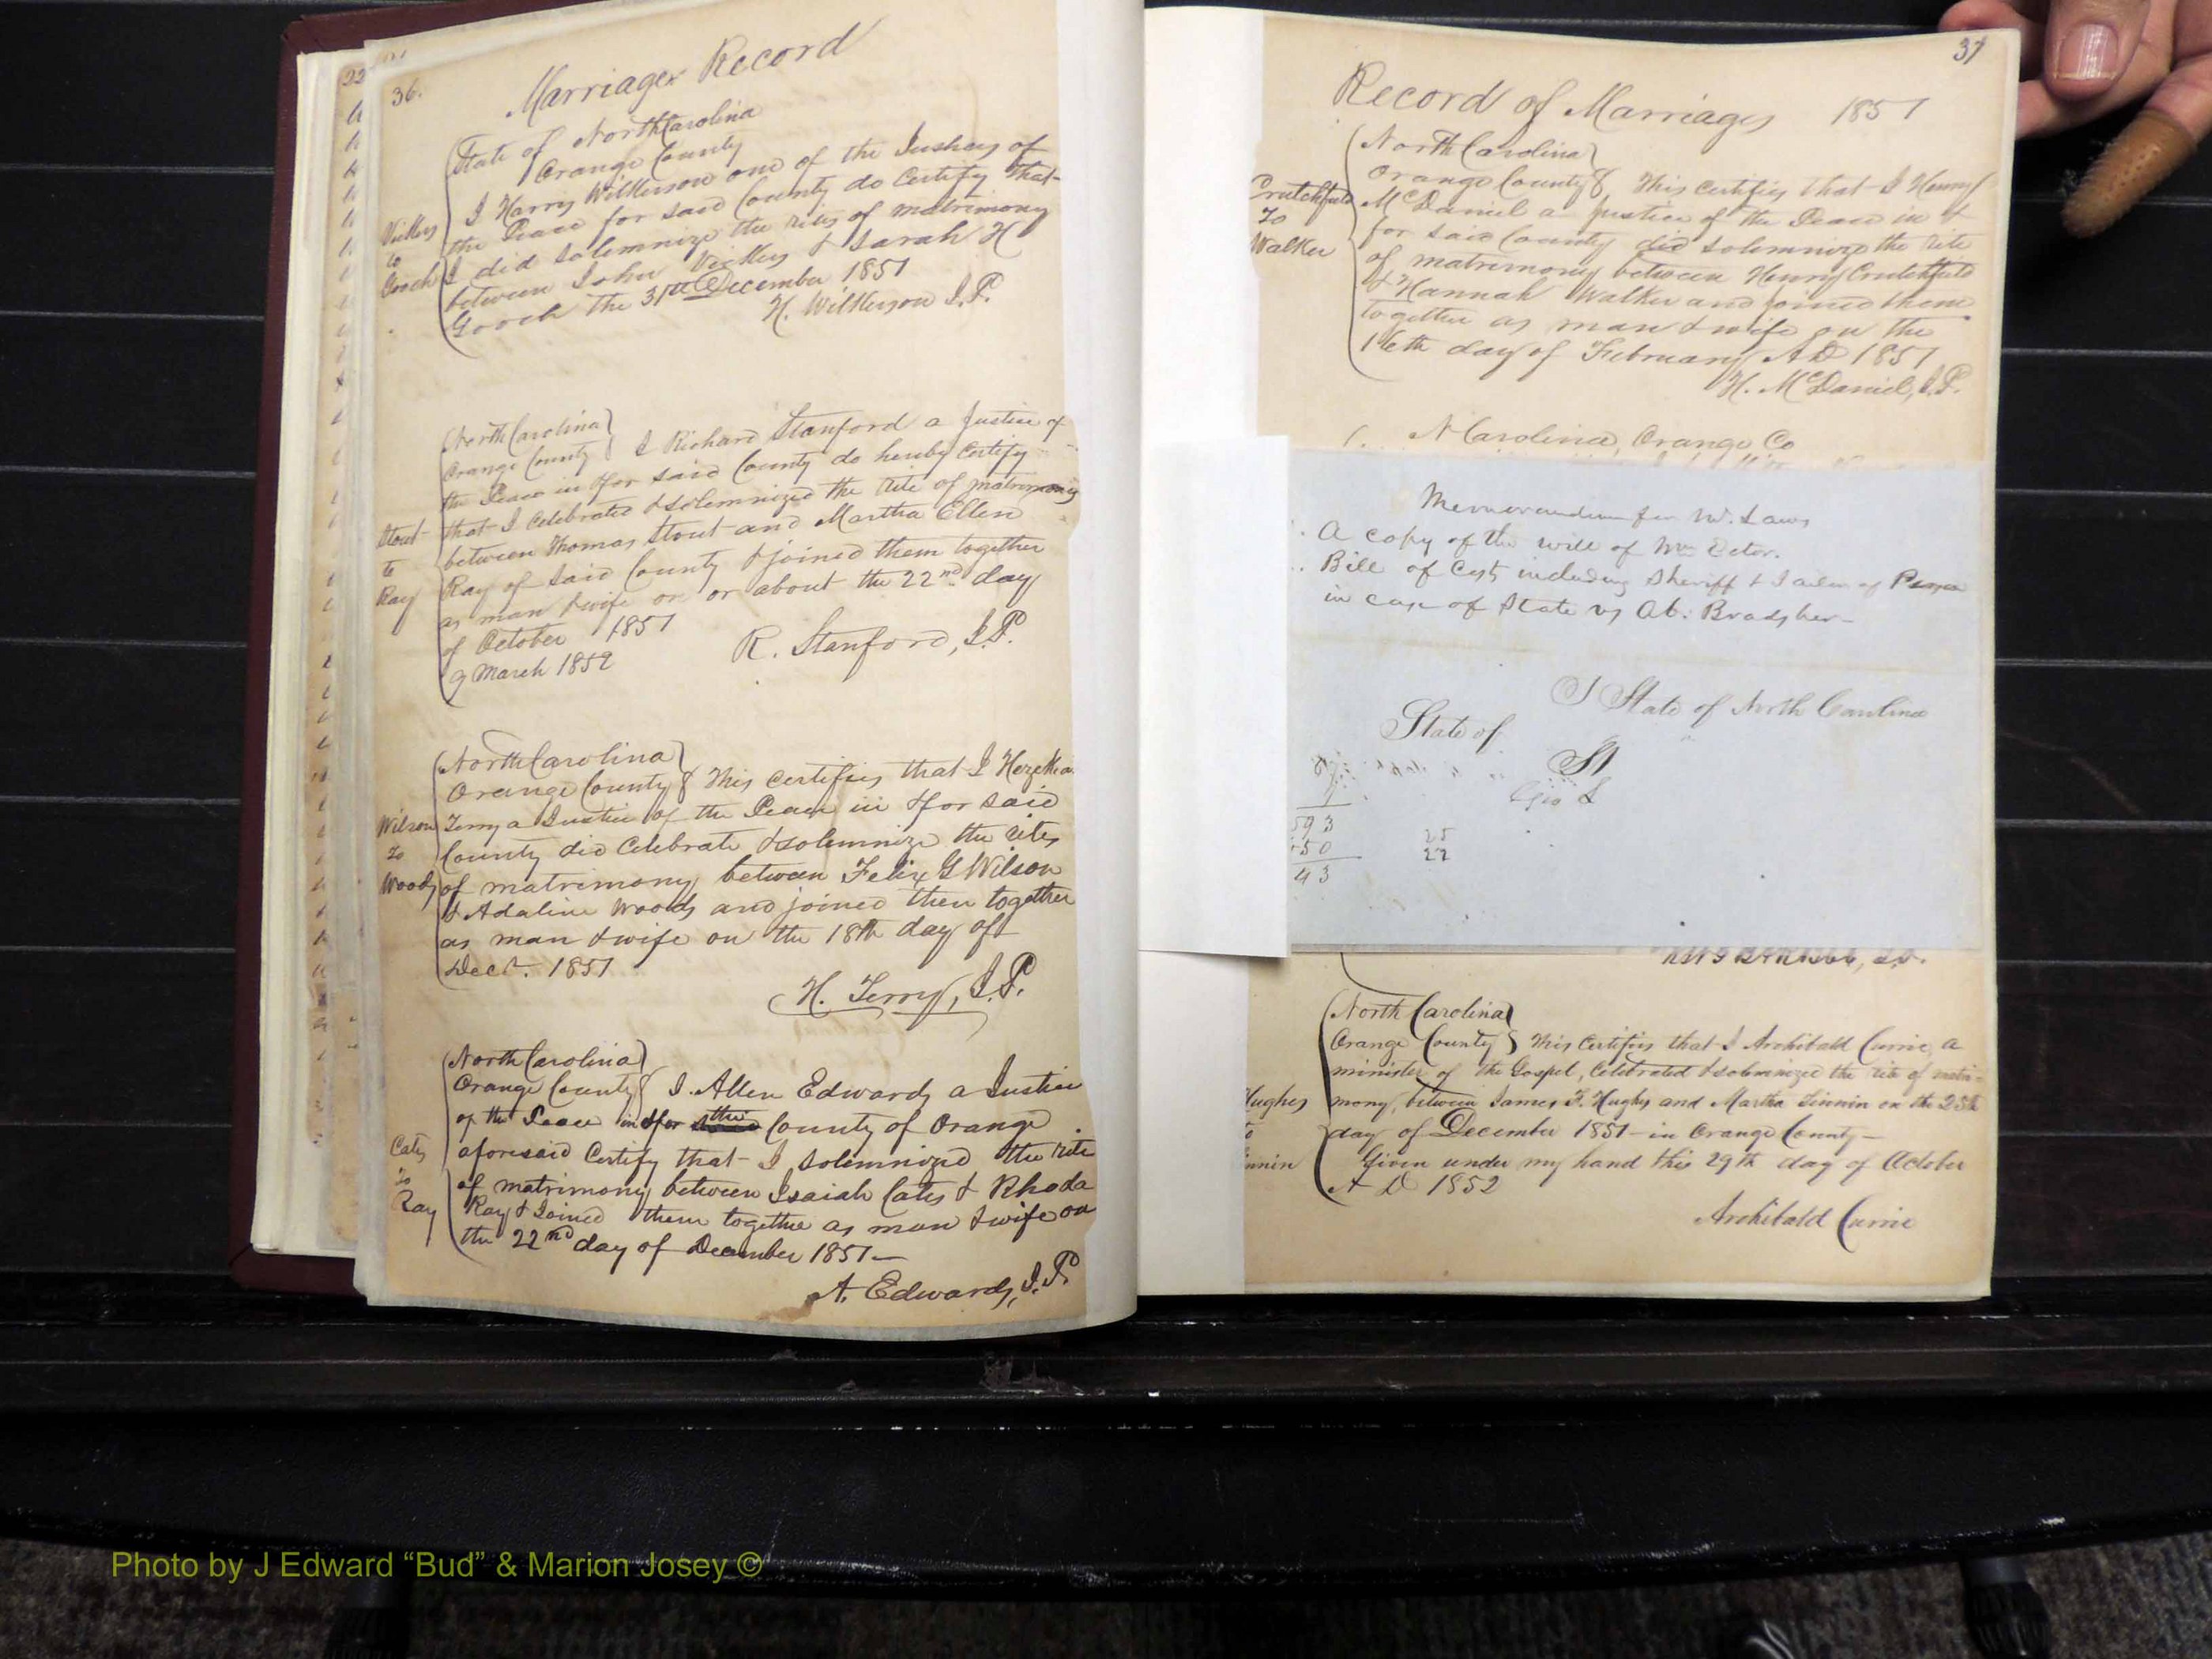 36.
Marriages Record
State of North Carolina
Orange County
I Harris Wilkerson one of the Justices of
the Peace for said County do Certify that
I did solemnize the rites of matrimony
between John Vickers & Sarah H
Gooch the 31st December 1851
H. Wilkerson J.P.
Vickers
to
Gooch
North Carolina
Orange County I Richard Stanford a Justice of
the Peace in & for said County do hereby Certify
that I Celebrated & solemnized the rite of matrimony
between Thomas Stout and Martha Ellen
Ray of said County & joined them together
as man & wife on or about the 22nd day
of October 1851
9 March 1852
R. Stanford, J.P.
Stout
to
Ray
North Carolina
Orange County This certifies that I Hezekia
Terry a Justice of the Peace in & for said
County did Celebrate & solemnize the rites
of matrimony between Felix G Wilson
& Adaline Woods and joined them together
as man & wife on the 18th day of
Decr. 1851
H. Terry, J.P.
Wilson
to
Woods
North Carolina
Orange County I. Allen Edwards a Justice
of the Peace in & for the County of Orange
aforesaid Certify that I solemnized the rite
of matrimony between Isaiah Cates & Rhoda
Ray & Joined them together as man & wife on
the 22nd day of December 1851—
A. Edwards, J.P.
Cates
to
Ray
37
Record of Marriages 1851
North Carolina
Orange County This certifies that I Henry
McDaniel a Justice of the Peace in &
for said County did solemnize the rite
of matrimony between Henry Crutchfield
& Hannah Walker and joined them
together as man & wife on the
16th day of February A D 1851
H. McDaniel, J.P.
Crutchfield
to
Walker
N Carolina, Orange Co
Memorandum for W. Laws
A copy of the will of Wm
Bill of Cost including Sheriff & Jailer of Person
in case of State vs Ab: Bradsher—
I State of North Carolina
State of
St
Geo S
593
50
43
25
22
North Carolina
Orange County This Certifies that I Archibald Currie, a
minister of the Gospel, Celebrated & solemnized the rite of matri-
mony, between James F. Hughes and Martha Tinnin on the 25th
day of December 1851—in Orange County—
Given under my hand this 29th day of October
A D 1852
Archibald Currie
Hughes
to
innin
Photo by J Edward “Bud” & Marion Josey ©